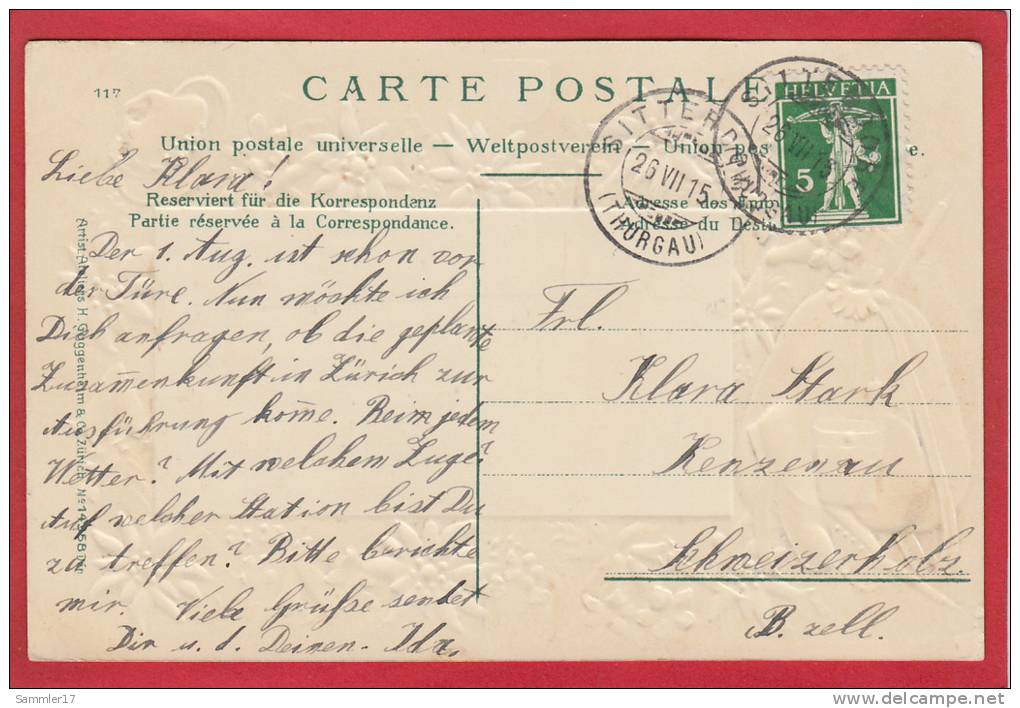 117
CARTE POSTALE
Union postale universelle — Weltpostverein — Union pos e.
Reserviert für die Korrespondenz
Partie réservée à la Correspondance.
Adresse des
Adresse du
HELVETIA
5
SITTERDORF
26 VII 15
(THURGAU)
Liebe Klara!
Der 1. Aug. ist schon vor
der Türe. Nun möchte ich
Dich anfragen, ob die geplante
Zusam̅enkunft in Zürich zur
Ausführung kom̅e. Beim jedem
Wetter? Mit welchem Zuge?
Auf welcher Station bist Du
zu treffen? Bitte berichte
mir. Viele Grüsse sendet
Dir u. d. Deinen. Ida.
Frl.
Klara Stark
Kenzenau
Schweizerholz.
B. zell.
Artist. Ateliers H. Guggenheim & Co. Zürich.
Sammler17
www.delcampe.net